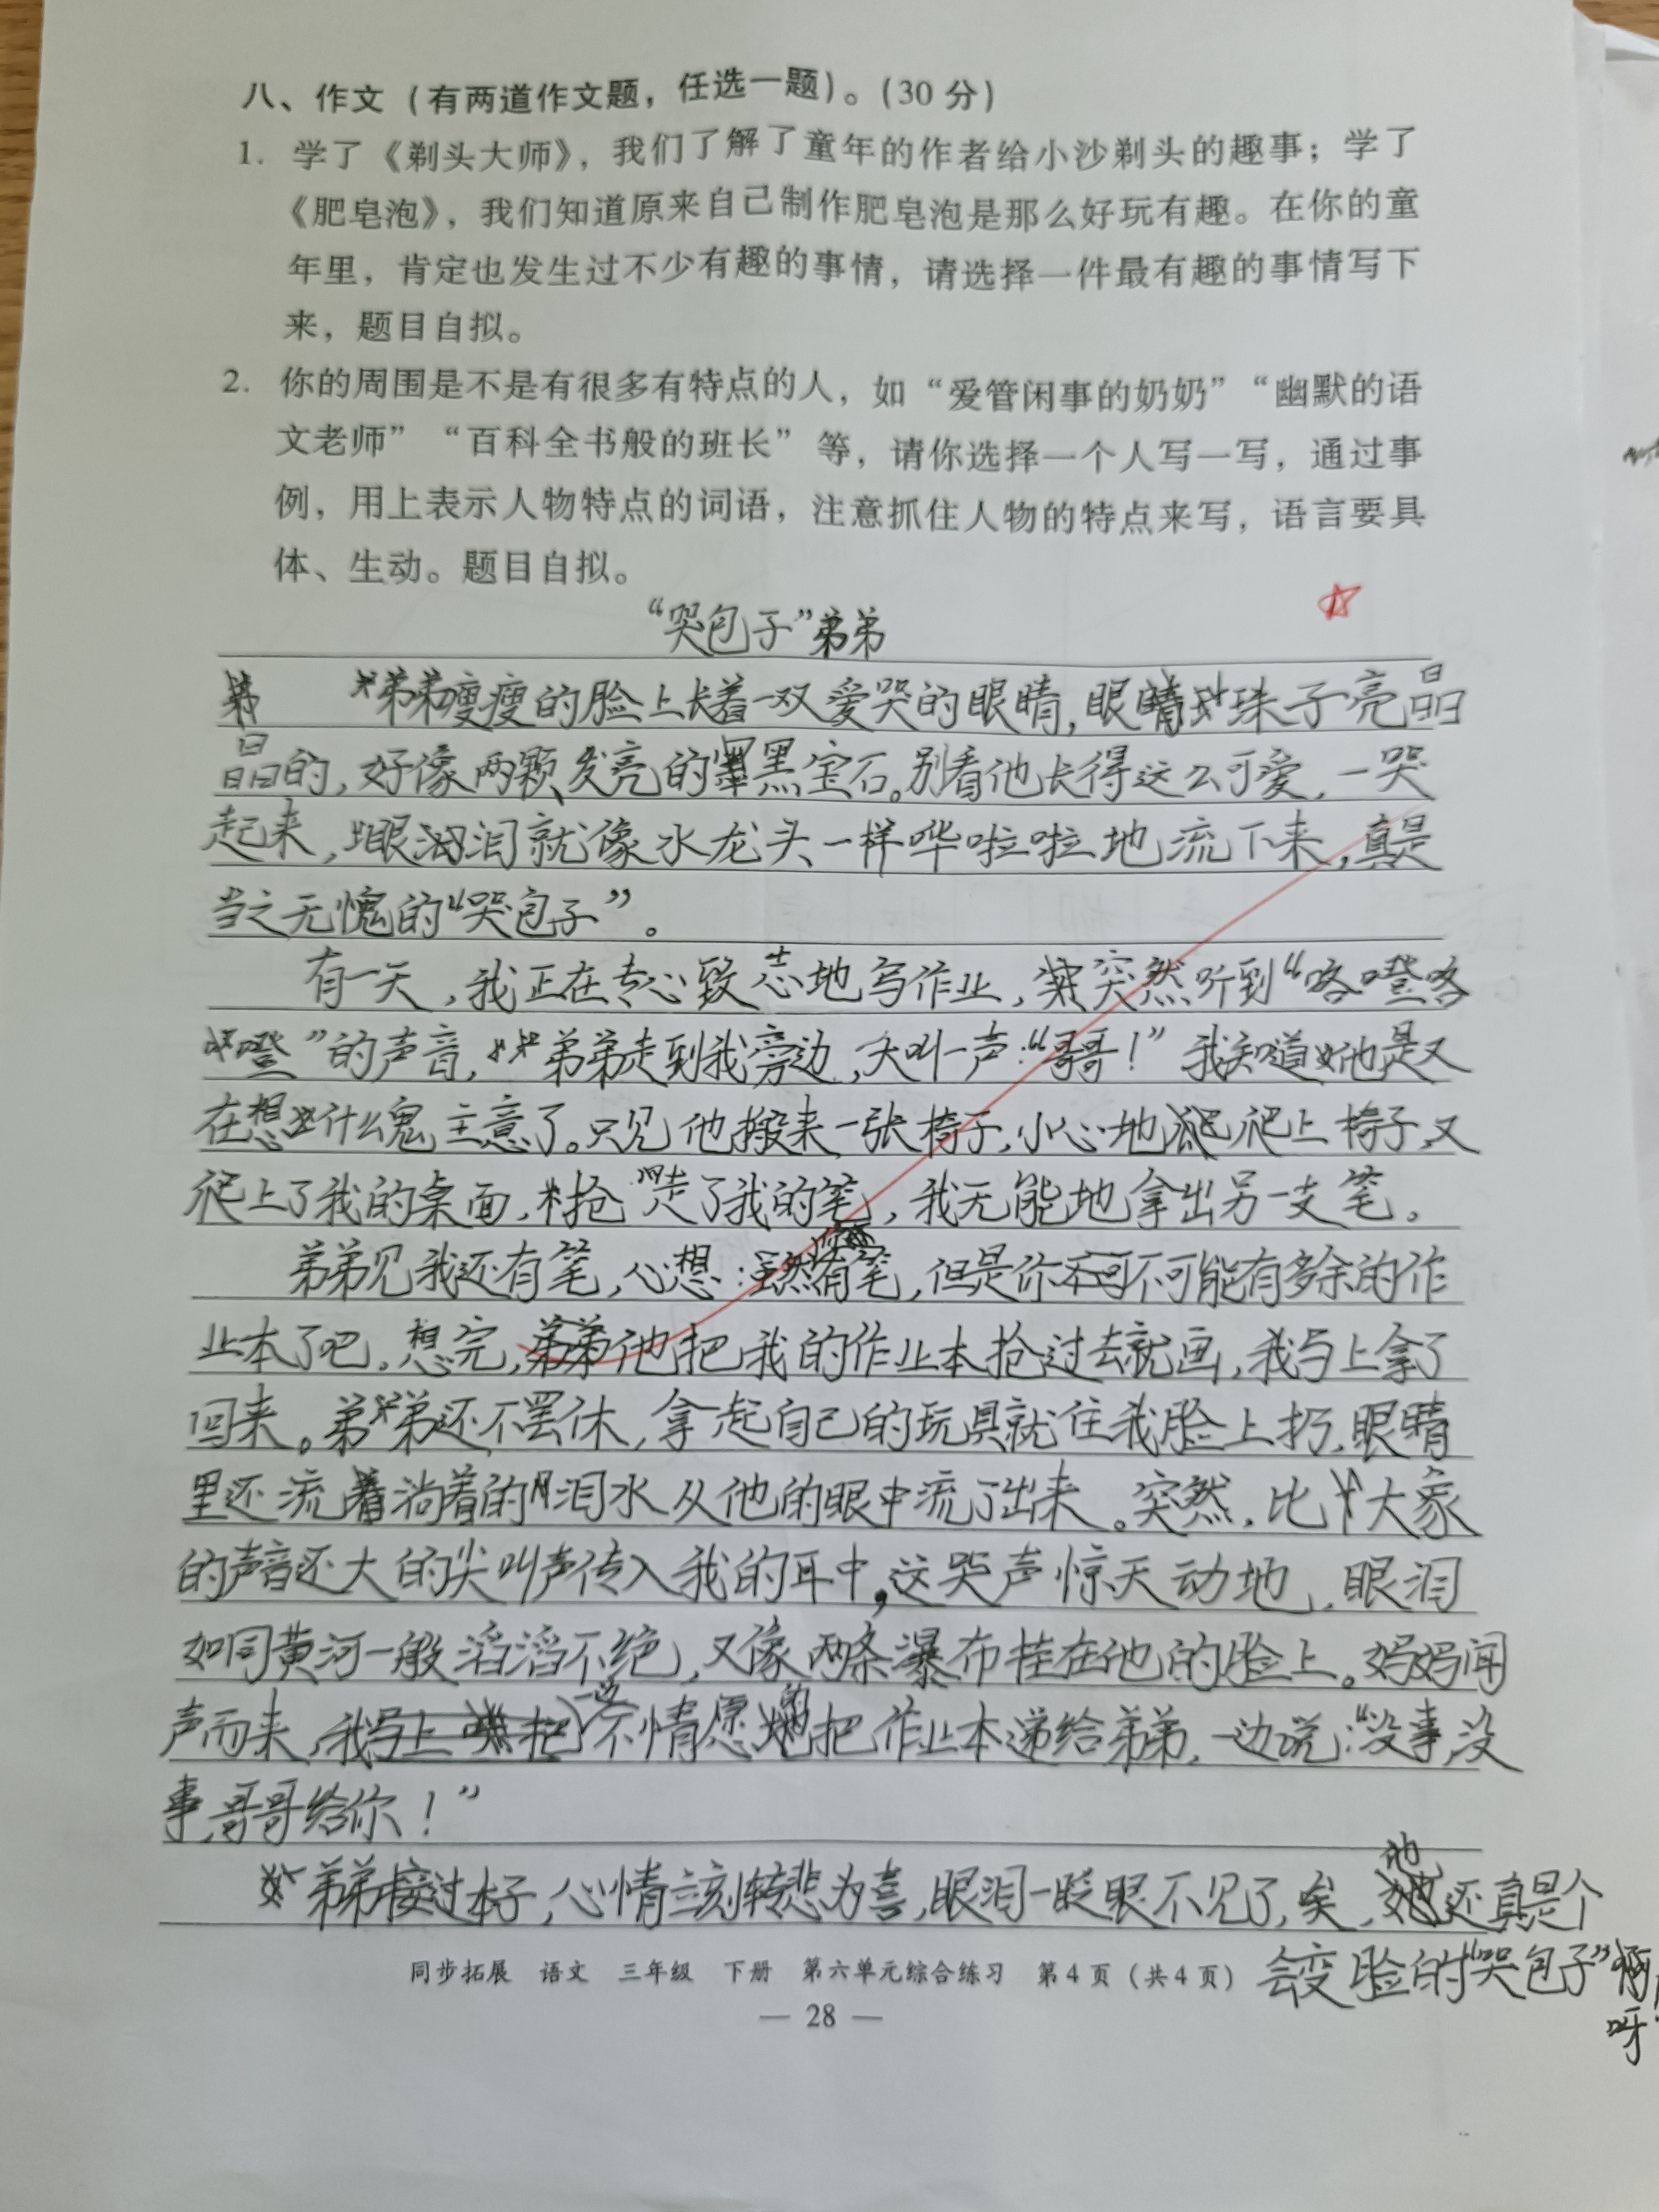 八、作文（有两道作文题，任选一题）。（30 分）
1. 学了《剃头大师》，我们了解了童年的作者给小沙剃头的趣事；学了
《肥皂泡》，我们知道原来自己制作肥皂泡是那么好玩有趣。在你的童
年里，肯定也发生过不少有趣的事情，请选择一件最有趣的事情写下
来，题目自拟。
2. 你的周围是不是有很多有特点的人，如“爱管闲事的奶奶”“幽默的语
文老师”“百科全书般的班长”等，请你选择一个人写一写，通过事
例，用上表示人物特点的词语，注意抓住人物的特点来写，语言要具
体、生动。题目自拟。
“哭包子”弟弟
弟弟瘦瘦的脸上长着一双爱哭的眼睛，眼珠子亮晶
晶的，好像两颗发亮的黑宝石。别看他长得这么可爱，一哭
起来，眼泪就像水龙头一样哗啦啦地流下来，真是
当之无愧的“哭包子”。
有一天，我正在专心致志地写作业，突然听到“咯噔咯
噔”的声音，弟弟走到我旁边，大叫一声：“哥哥！”我知道他是又
在想什么鬼主意了。只见他搬来一张椅子，小心地爬上椅子，又
爬上了我的桌面，抢走了我的笔，我无能地拿出另一支笔。
弟弟见我还有笔，心想：虽然有笔，但是你不可能有多余的作
业本了吧。想完，他把我的作业本抢过去就画，我马上拿了
回来。弟弟还不罢休，拿起自己的玩具就住我脸上扔，眼睛
里还流淌着的泪水从他的眼中流了出来。突然，比大象
的声音还大的尖叫声传入我的耳中，这哭声惊天动地，眼泪
如同黄河一般滔滔不绝，又像两条瀑布挂在他的脸上。妈妈闻
声而来，我一边不情愿的把作业本递给弟弟，一边说：“没事，没
事，哥哥给你！”
弟弟接过本子，心情立刻转悲为喜，眼泪一眨眼不见了，唉，他还真是个
会变脸的“哭包子”
呀
同步拓展 语文 三年级 下册 第六单元综合练习 第4页（共4页）
— 28 —